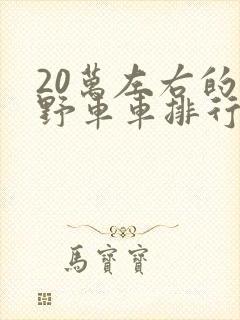 20萬左右的
野車車排行
馬寶寶